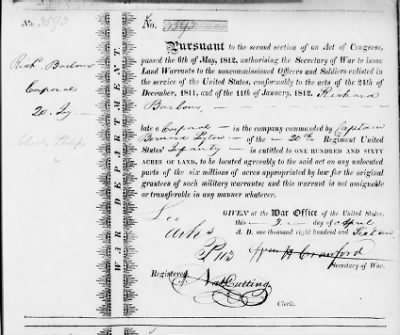 No. 3593
No. 3593
Pursuant to the second section of an Act of Congress,
passed the 6th of May, 1812, authorising the Secretary of War to issue
Land Warrants to the noncommissioned Officers and Soldiers enlisted in
the service of the United States, conformably to the acts of the 24th of
December, 1811, and of the 11th of January, 1812. Richard
Barlow
late a Corporal in the company commanded by Captain
of the 20th Regiment United
States' Infantry is entitled to ONE HUNDRED AND SIXTY
ACRES OF LAND, to be located agreeably to the said act on any unlocated
parts of the six millions of acres appropriated by law for the original
grantees of such military warrants; and this warrant is not assignable
or transferable in any manner whatever.
GIVEN at the War Office of the United States,
this 3 day of April
A. D. one thousand eight hundred and
Wm H Crawford
Secretary of War.
Registered
Nat Cutting
Clerk.
WAR DEPARTMENT.
Richd Barlow
Corporal
20. Iy